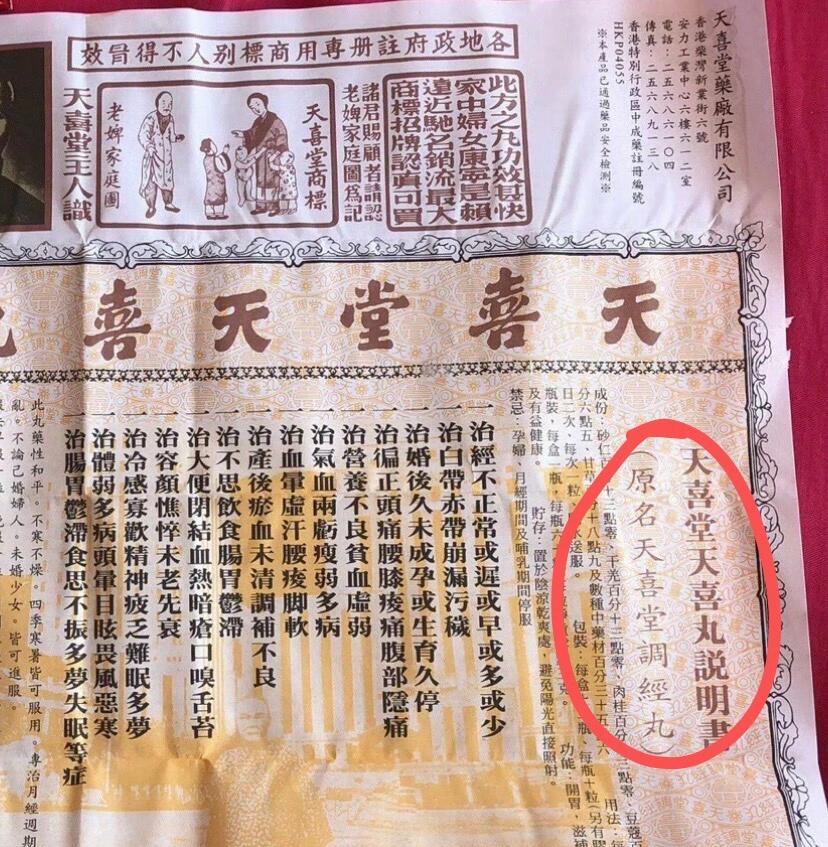 天喜堂藥廠有限公司
香港柴灣新業街六號
安力工業中心六樓六一二室
電話：二五六八六一〇四
傳真：二五六八九一三八
香港特別行政區中成藥註冊編號
HKP04055
※本產品已通過藥品安全檢測※
各地政府註册專用商標别人不得冒效
此方之丸功效甚快
家中婦女康寧是賴
遠近馳名銷流最大
商標招牌認真可買
諸君賜顧者請認
老婢家庭圖爲記
天喜堂商標
老婢家庭圖
天喜堂主人識
天喜堂天喜
天喜堂天喜丸説明書
（原名天喜堂調經丸）
禁忌：孕婦、月經期間及哺乳期間停服
及有益健康。
貯存：置於陰涼乾爽處，避免陽光直接照射。
一治經不正常或遲或早或多或少
一治白帶赤帶崩漏污穢
一治婚後久未成孕或生育久停
一治偏正頭痛腰膝痠痛腹部隱痛
一治營養不良貧血虛弱
一治氣血兩虧瘦弱多病
一治血暈虛汗腰痠脚軟
一治產後瘀血未清調補不良
一治不思飲食腸胃鬱滯
一治大便閉結血熱暗瘡口嗅舌苔
一治容顏憔悴未老先衰
一治冷感寡歡精神疲乏難眠多夢
一治體弱多病頭暈目眩畏風惡寒
一治腸胃鬱滯食思不振多夢失眠等症
此丸藥性和平。不寒不燥。四季寒暑皆可服用。專治月經週期
亂。不論已婚婦人。未婚少女。皆可進服。